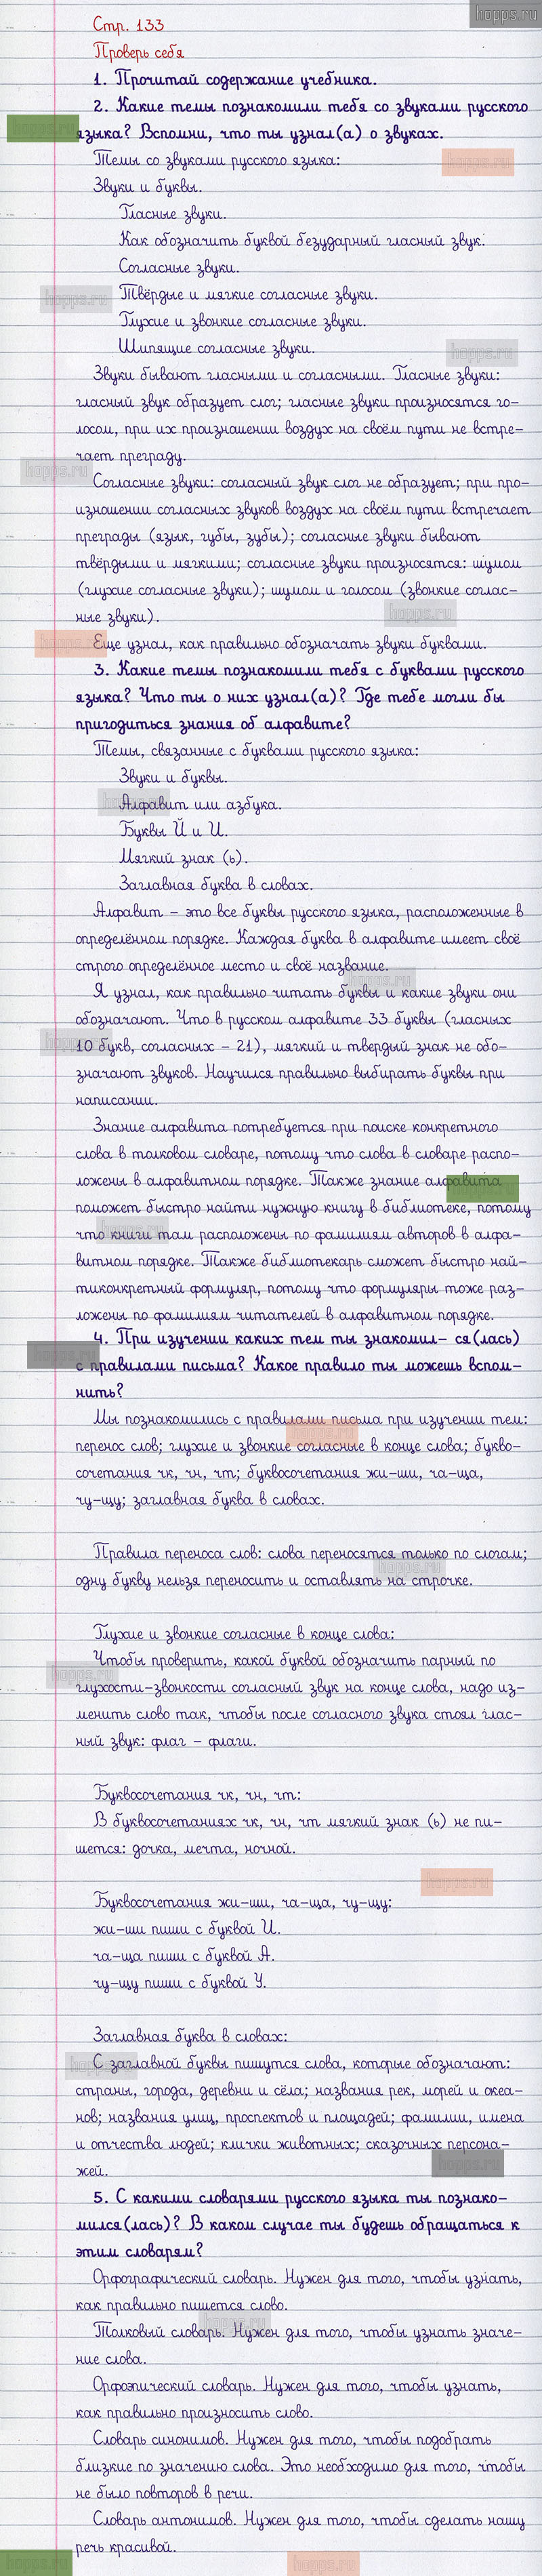 hopps.ru
Стр. 133
Проверь себя
1. Прочитай содержание учебника.
2. Какие темы познакомили тебя со звуками русского
языка? Вспомни, что ты узнал(а) о звуках.
Темы со звуками русского языка:
Звуки и буквы.
Гласные звуки.
Как обозначить буквой безударный гласный звук.
Согласные звуки.
Твёрдые и мягкие согласные звуки.
Глухие и звонкие согласные звуки.
Шипящие согласные звуки.
Звуки бывают гласными и согласными. Гласные звуки:
гласный звук образует слог; гласные звуки произносятся го-
лосом, при их произношении воздух на своём пути не встре-
чает преграду.
Согласные звуки: согласный звук слог не образует; при про-
изношении согласных звуков воздух на своём пути встречает
преграды (язык, губы, зубы); согласные звуки бывают
твёрдыми и мягкими; согласные звуки произносятся: шумом
(глухие согласные звуки); шумом и голосом (звонкие соглас-
ные звуки).
Еще узнал, как правильно обозначать звуки буквами.
3. Какие темы познакомили тебя с буквами русского
языка? Что ты о них узнал(а)? Где тебе могли бы
пригодиться знания об алфавите?
Темы, связанные с буквами русского языка:
Звуки и буквы.
Алфавит или азбука.
Буквы Й и И.
Мягкий знак (ь).
Заглавная буква в словах.
Алфавит – это все буквы русского языка, расположенные в
определённом порядке. Каждая буква в алфавите имеет своё
строго определённое место и своё название.
Я узнал, как правильно читать буквы и какие звуки они
обозначают. Что в русском алфавите 33 буквы (гласных
10 букв, согласных – 21), мягкий и твердый знак не обо-
значают звуков. Научился правильно выбирать буквы при
написании.
Знание алфавита потребуется при поиске конкретного
слова в толковом словаре, потому что слова в словаре распо-
ложены в алфавитном порядке. Также знание алфавита
поможет быстро найти нужную книгу в библиотеке, потому
что книги там расположены по фамилиям авторов в алфа-
витном порядке. Также библиотекарь сможет быстро най-
тиконкретный формуляр, потому что формуляры тоже раз-
ложены по фамилиям читателей в алфавитном порядке.
4. При изучении каких тем ты знакомил- ся(лась)
с правилами письма? Какое правило ты можешь вспом-
нить?
Мы познакомились с правилами письма при изучении тем:
перенос слов; глухие и звонкие согласные в конце слова; букво-
сочетания чк, чн, чт; буквосочетания жи-ши, ча-ща,
чу-щу; заглавная буква в словах.
Правила переноса слов: слова переносятся только по слогам;
одну букву нельзя переносить и оставлять на строчке.
Глухие и звонкие согласные в конце слова:
Чтобы проверить, какой буквой обозначить парный по
глухости-звонкости согласный звук на конце слова, надо из-
менить слово так, чтобы после согласного звука стоял глас-
ный звук: флаг – флаги.
Буквосочетания чк, чн, чт:
В буквосочетаниях чк, чн, чт мягкий знак (ь) не пи-
шется: дочка, мечта, ночной.
Буквосочетания жи-ши, ча-ща, чу-щу:
жи-ши пиши с буквой И.
ча-ща пиши с буквой А.
чу-щу пиши с буквой У.
Заглавная буква в словах:
С заглавной буквы пишутся слова, которые обозначают:
страны, города, деревни и сёла; названия рек, морей и океа-
нов; названия улиц, проспектов и площадей; фамилии, имена
и отчества людей; клички животных; сказочных персона-
жей.
5. С какими словарями русского языка ты познако-
мился(лась)? В каком случае ты будешь обращаться к
этим словарям?
Орфографический словарь. Нужен для того, чтобы узнать,
как правильно пишется слово.
Толковый словарь. Нужен для того, чтобы узнать значе-
ние слова.
Орфоэпический словарь. Нужен для того, чтобы узнать,
как правильно произносить слово.
Словарь синонимов. Нужен для того, чтобы подобрать
близкие по значению слова. Это необходимо для того, чтобы
не было повторов в речи.
Словарь антонимов. Нужен для того, чтобы сделать нашу
речь красивой.